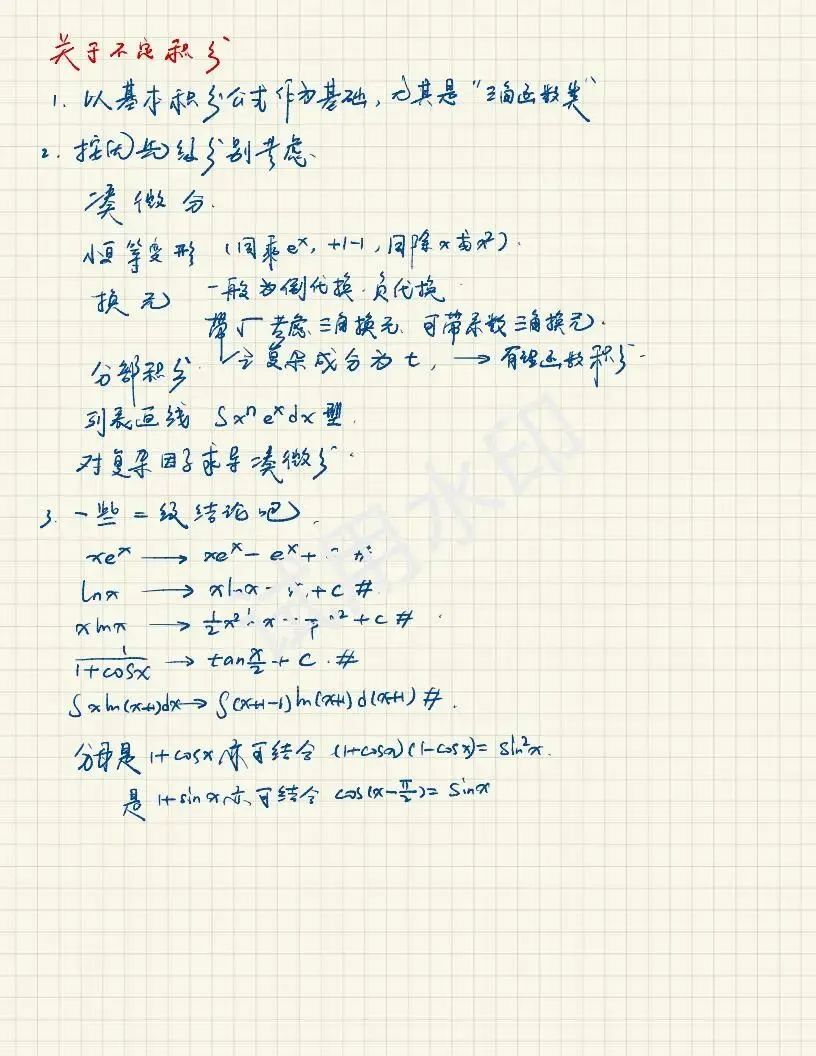 关于不定积分
1. 以基本积分公式作为基础，尤其是“三角函数类”
2. 按以分别考虑
凑微分.
恒等变形 (同乘e^x, +1-1, 同除x或x²).
换元 一般为倒代换、负代换
带√考虑三角换元, 可带系数三角换元.
分部积分. 令复杂成分为t, → 有理函数积分.
列表画线 ∫x^n e^x dx型.
对复杂因子求导凑微分.
3. 一些二级结论吧.
xe^x → xe^x - e^x +
lnx → xlnx - +c #
xlnx → 1/2 x² x +c #
1/(1+cosx) → tan x/2 + C. #
∫xln(x+1)dx → ∫(x+1-1)ln(x+1)d(x+1) #.
分母是1+cosx, 亦可结合 (1+cosx)(1-cosx)=sin²x.
是1+sinx, 亦可结合 cos(x-π/2)=sinx
试用水印